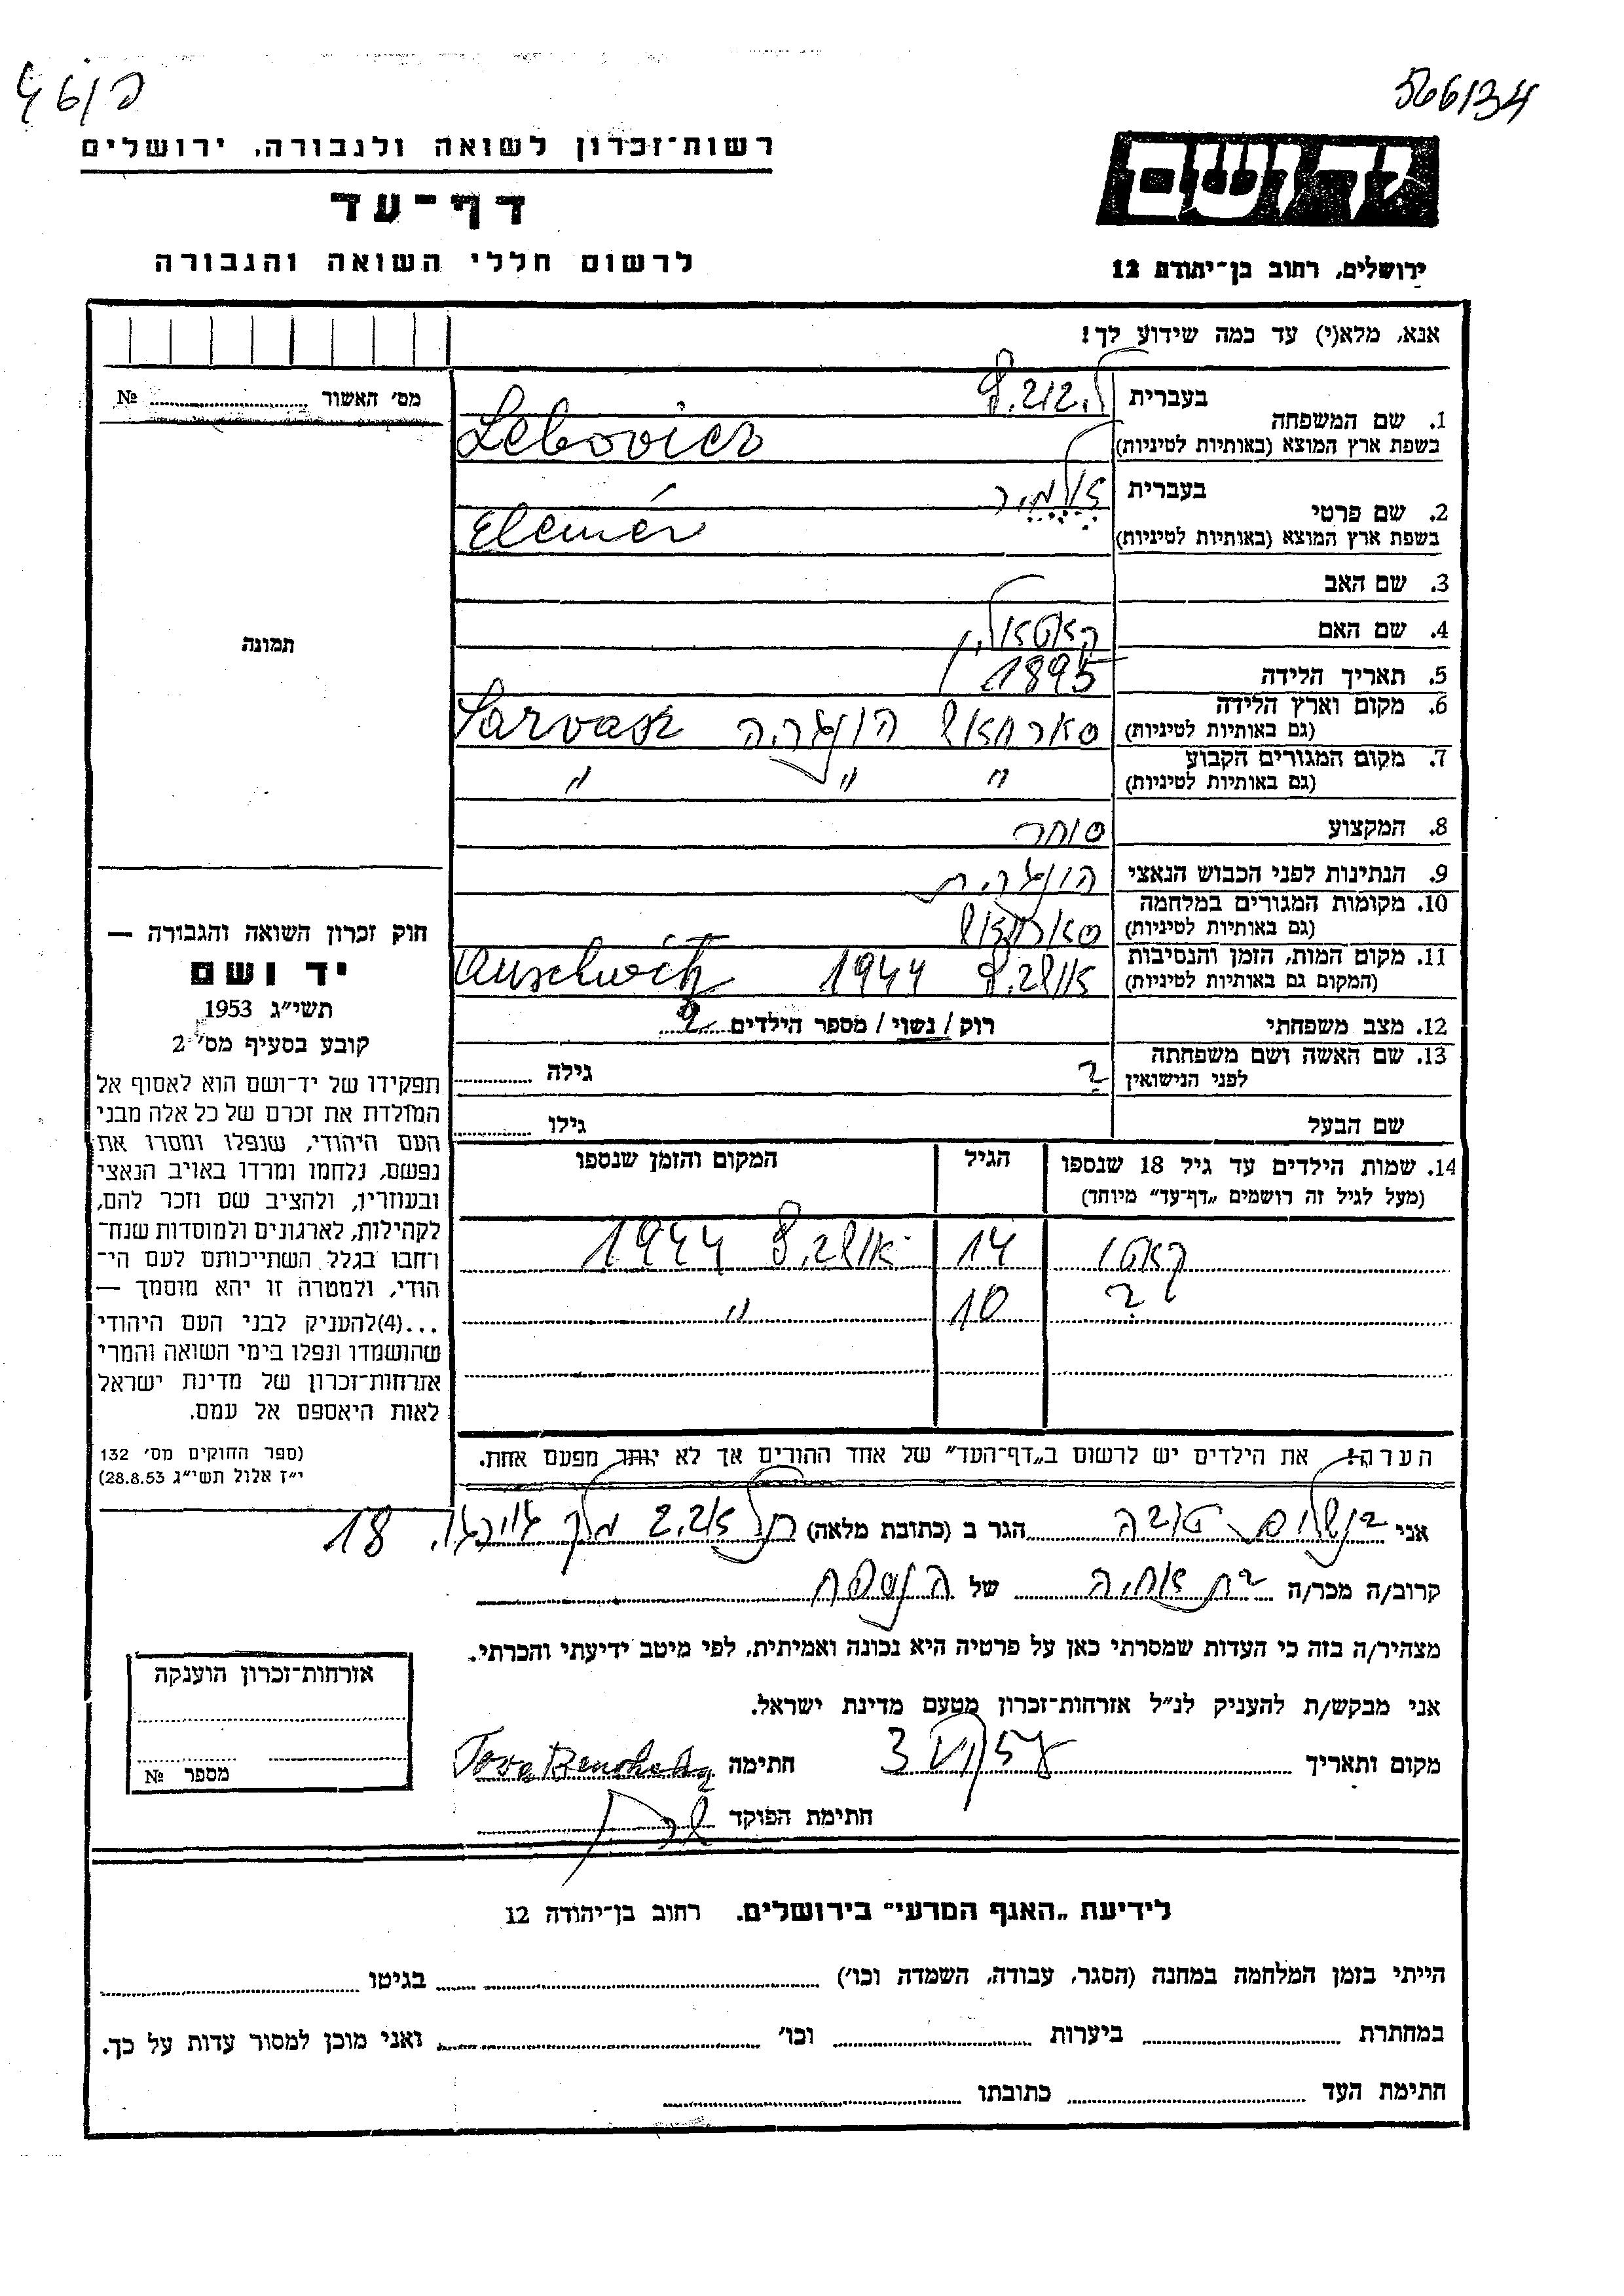 566134
46/פ
יד ושם
ירושלים, רחוב בן־יהודה 12
רשות־זכרון לשואה ולגבורה, ירושלים
דף־עד
לרשום חללי השואה והגבורה
אנא, מלא(י) עד כמה שידוע לך!
מס׳ האשור № ........
1. שם המשפחה בעברית
בשפת ארץ המוצא (באותיות לטיניות) Lebovics
2. שם פרטי בעברית אלמיר
בשפת ארץ המוצא (באותיות לטיניות) Elemér
3. שם האב
4. שם האם קאטאלין
5. תאריך הלידה 1895
6. מקום וארץ הלידה (גם באותיות לטיניות) סארוואש הונגריה Sarvasz
7. מקום המגורים הקבוע (גם באותיות לטיניות) " " "
8. המקצוע סוחר
9. הנתינות לפני הכבוש הנאצי הונגרית
10. מקומות המגורים במלחמה (גם באותיות לטיניות) סארוואש
11. מקום המות, הזמן והנסיבות (המקום גם באותיות לטיניות) אושביץ 1944 Auschwitz
12. מצב משפחתי רוק / נשוי / מספר הילדים 2
13. שם האשה ושם משפחתה לפני הנישואין ? גילה ........
שם הבעל גילו ........
14. שמות הילדים עד גיל 18 שנספו הגיל המקום והזמן שנספו
(מעל לגיל זה רושמים „דף־עד״ מיוחד)
קאטי 14 אושביץ 1944
? 10 "
הערה! את הילדים יש לרשום ב„דף־העד״ של אחד ההורים אך לא יותר מפעם אחת.
תמונה
חוק זכרון השואה והגבורה —
יד ושם
תשי״ג 1953
קובע בסעיף מס׳ 2
תפקידו של יד־ושם הוא לאסוף אל
המולדת את זכרם של כל אלה מבני
העם היהודי, שנפלו ומסרו את
נפשם, נלחמו ומרדו באויב הנאצי
ובעוזריו, ולהציב שם וזכר להם,
לקהילות, לארגונים ולמוסדות שנח־
רחבו בגלל השתייכותם לעם הי־
הודי, ולמטרה זו יהא מוסמך —
...(4)להעניק לבני העם היהודי
שהושמדו ונפלו בימי השואה והמרי
אזרחות־זכרון של מדינת ישראל
לאות היאספם אל עמם.
(ספר החוקים מס׳ 132
י״ז אלול תשי״ג 28.8.53)
אני בנשלום טובה הגר ב (כתובת מלאה) תל אביב מלך ג׳ורג׳ 18
קרוב/ה מכר/ה בת אחיה של הנספה
מצהיר/ה בזה כי העדות שמסרתי כאן על פרטיה היא נכונה ואמיתית, לפי מיטב ידיעתי והכרתי.
אני מבקש/ת להעניק לנ״ל אזרחות־זכרון מטעם מדינת ישראל.
מקום ותאריך 3 VI 57 חתימה
חתימת הפוקד
אזרחות־זכרון הוענקה
מספר №
לידיעת „האגף המדעי״ בירושלים. רחוב בן־יהודה 12
הייתי בזמן המלחמה במחנה (הסגר, עבודה, השמדה וכו׳) ........ בגיטו ........
במחתרת ........ ביערות ........ וכו׳ ........ ואני מוכן למסור עדות על כך.
חתימת העד ........ כתובתו ........